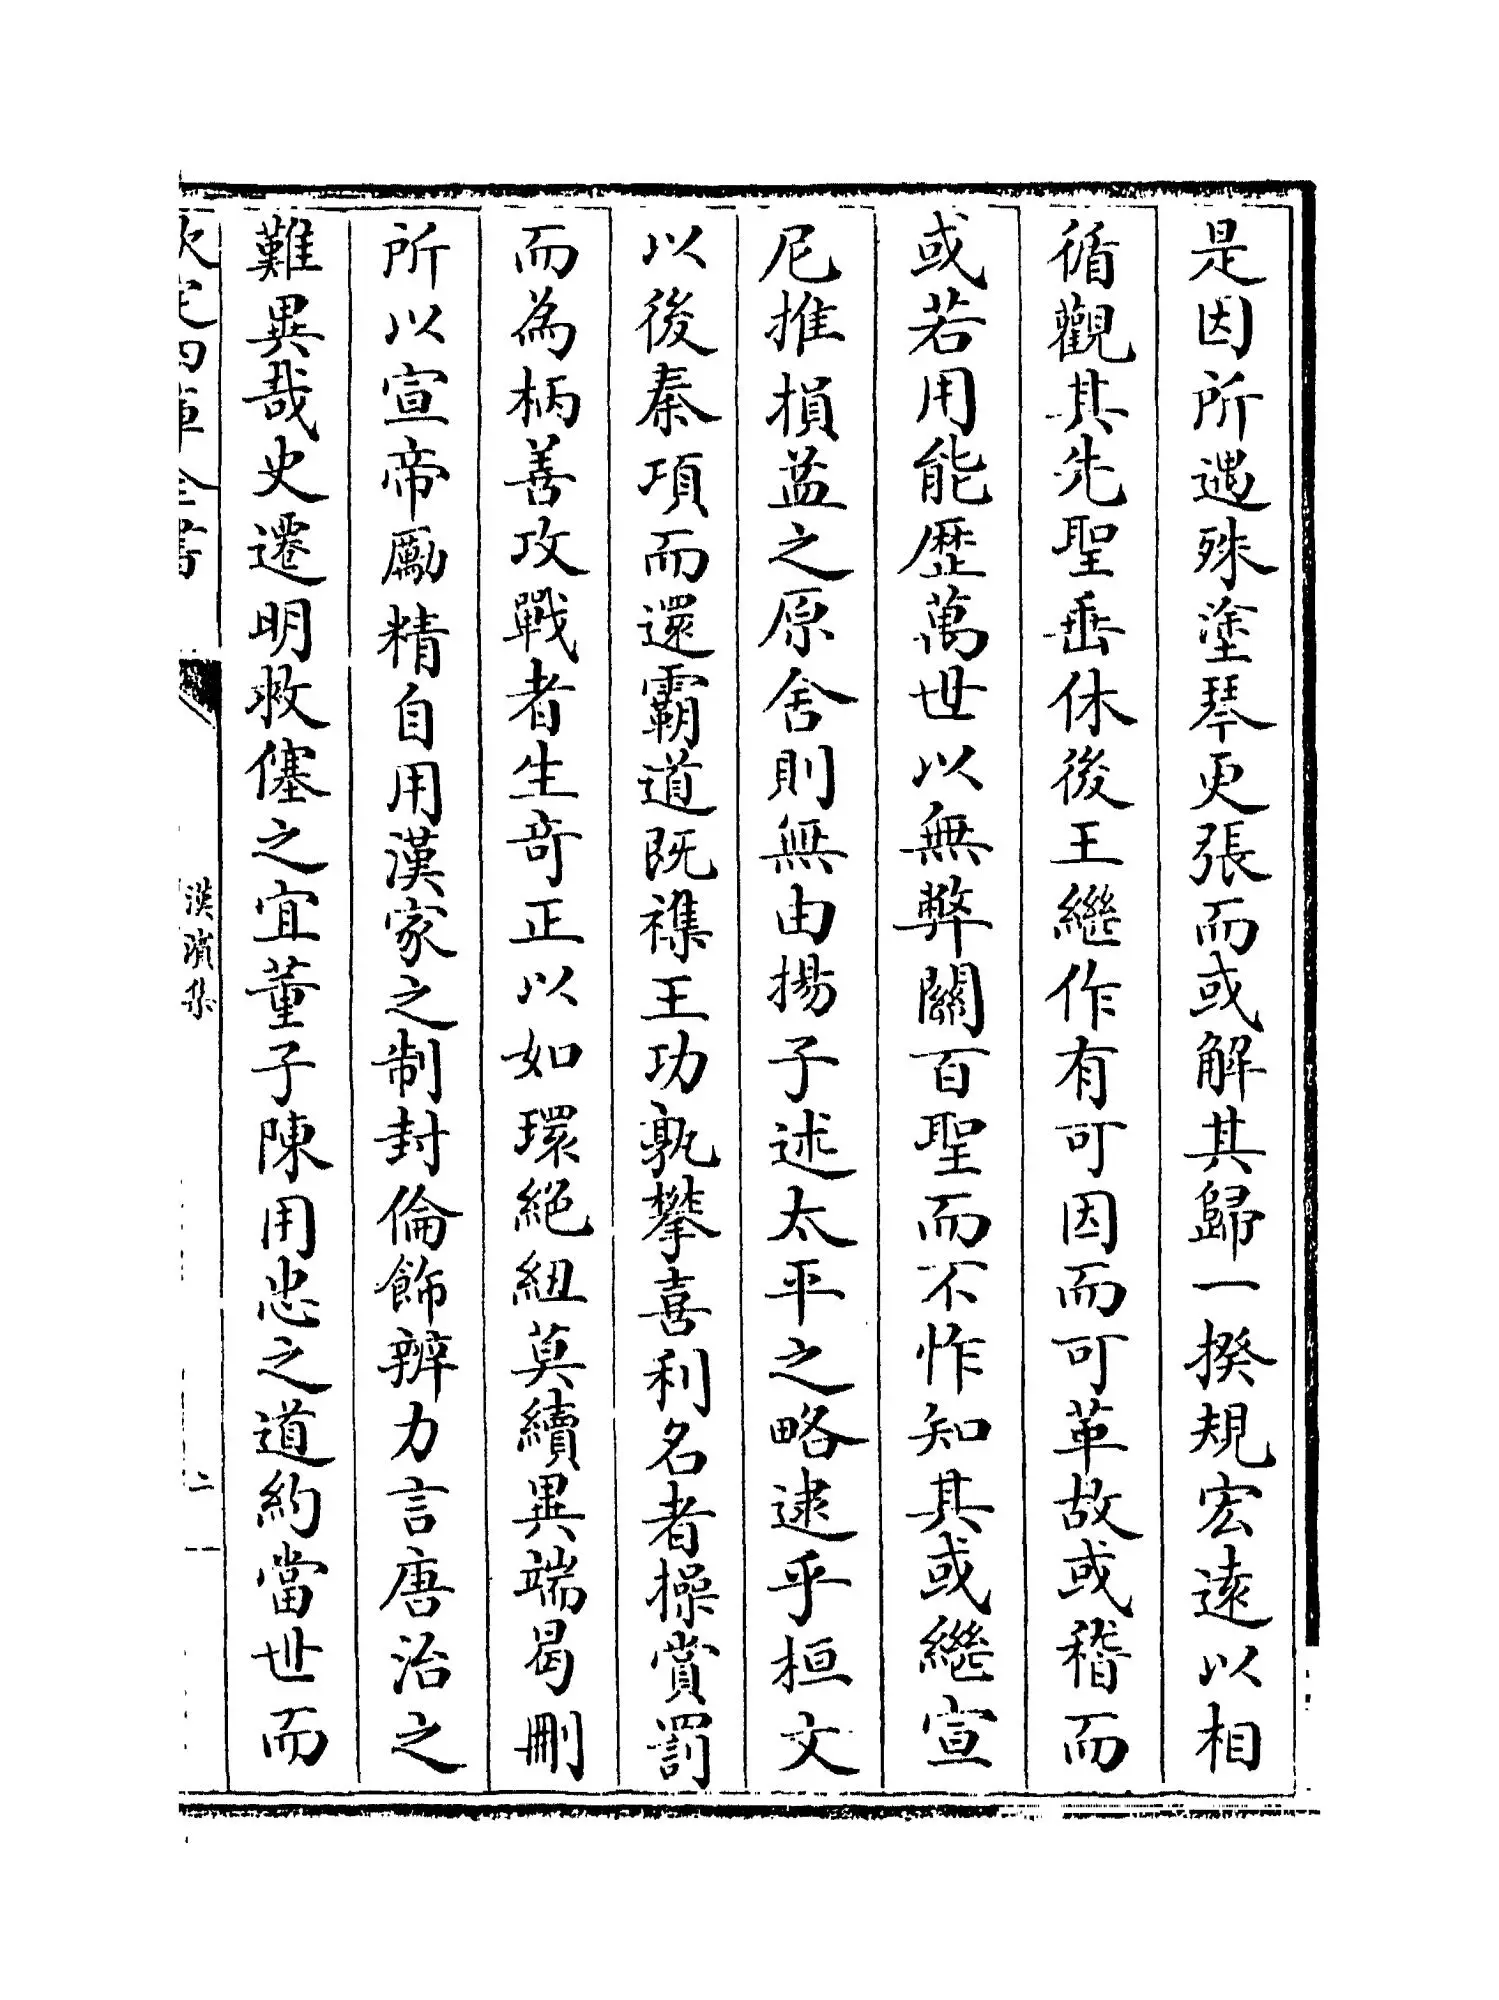 是因所遇殊塗琴更張而或解其歸一揆規宏遠以相
循觀其先聖垂休後王繼作有可因而可革故或稽而
或若用能歷萬世以無弊關百聖而不怍知其或繼宣
尼推損益之原舍則無由揚子述太平之略逮乎桓文
以後秦項而還霸道既襍王功孰攀喜利名者操賞罰
而為柄善攻戰者生奇正以如環絕紐莫續異端曷刪
所以宣帝勵精自用漢家之制封倫飾辨力言唐治之
難異哉史遷明救僿之宜董子陳用忠之道約當世而
欽定四庫全書
漢濱集
二